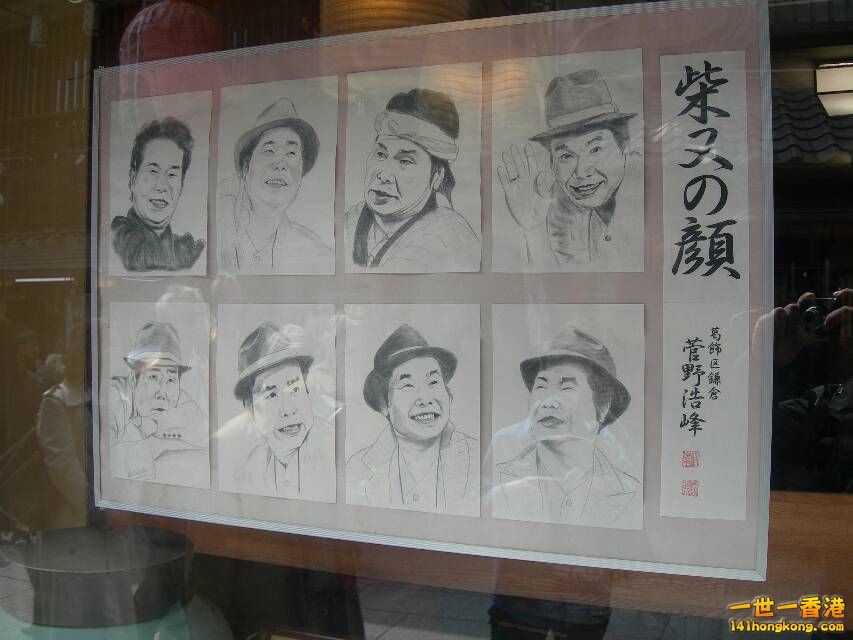 柴又の顔
葛飾区鎌倉
菅野浩峰
一世一香港
141hongkong.com